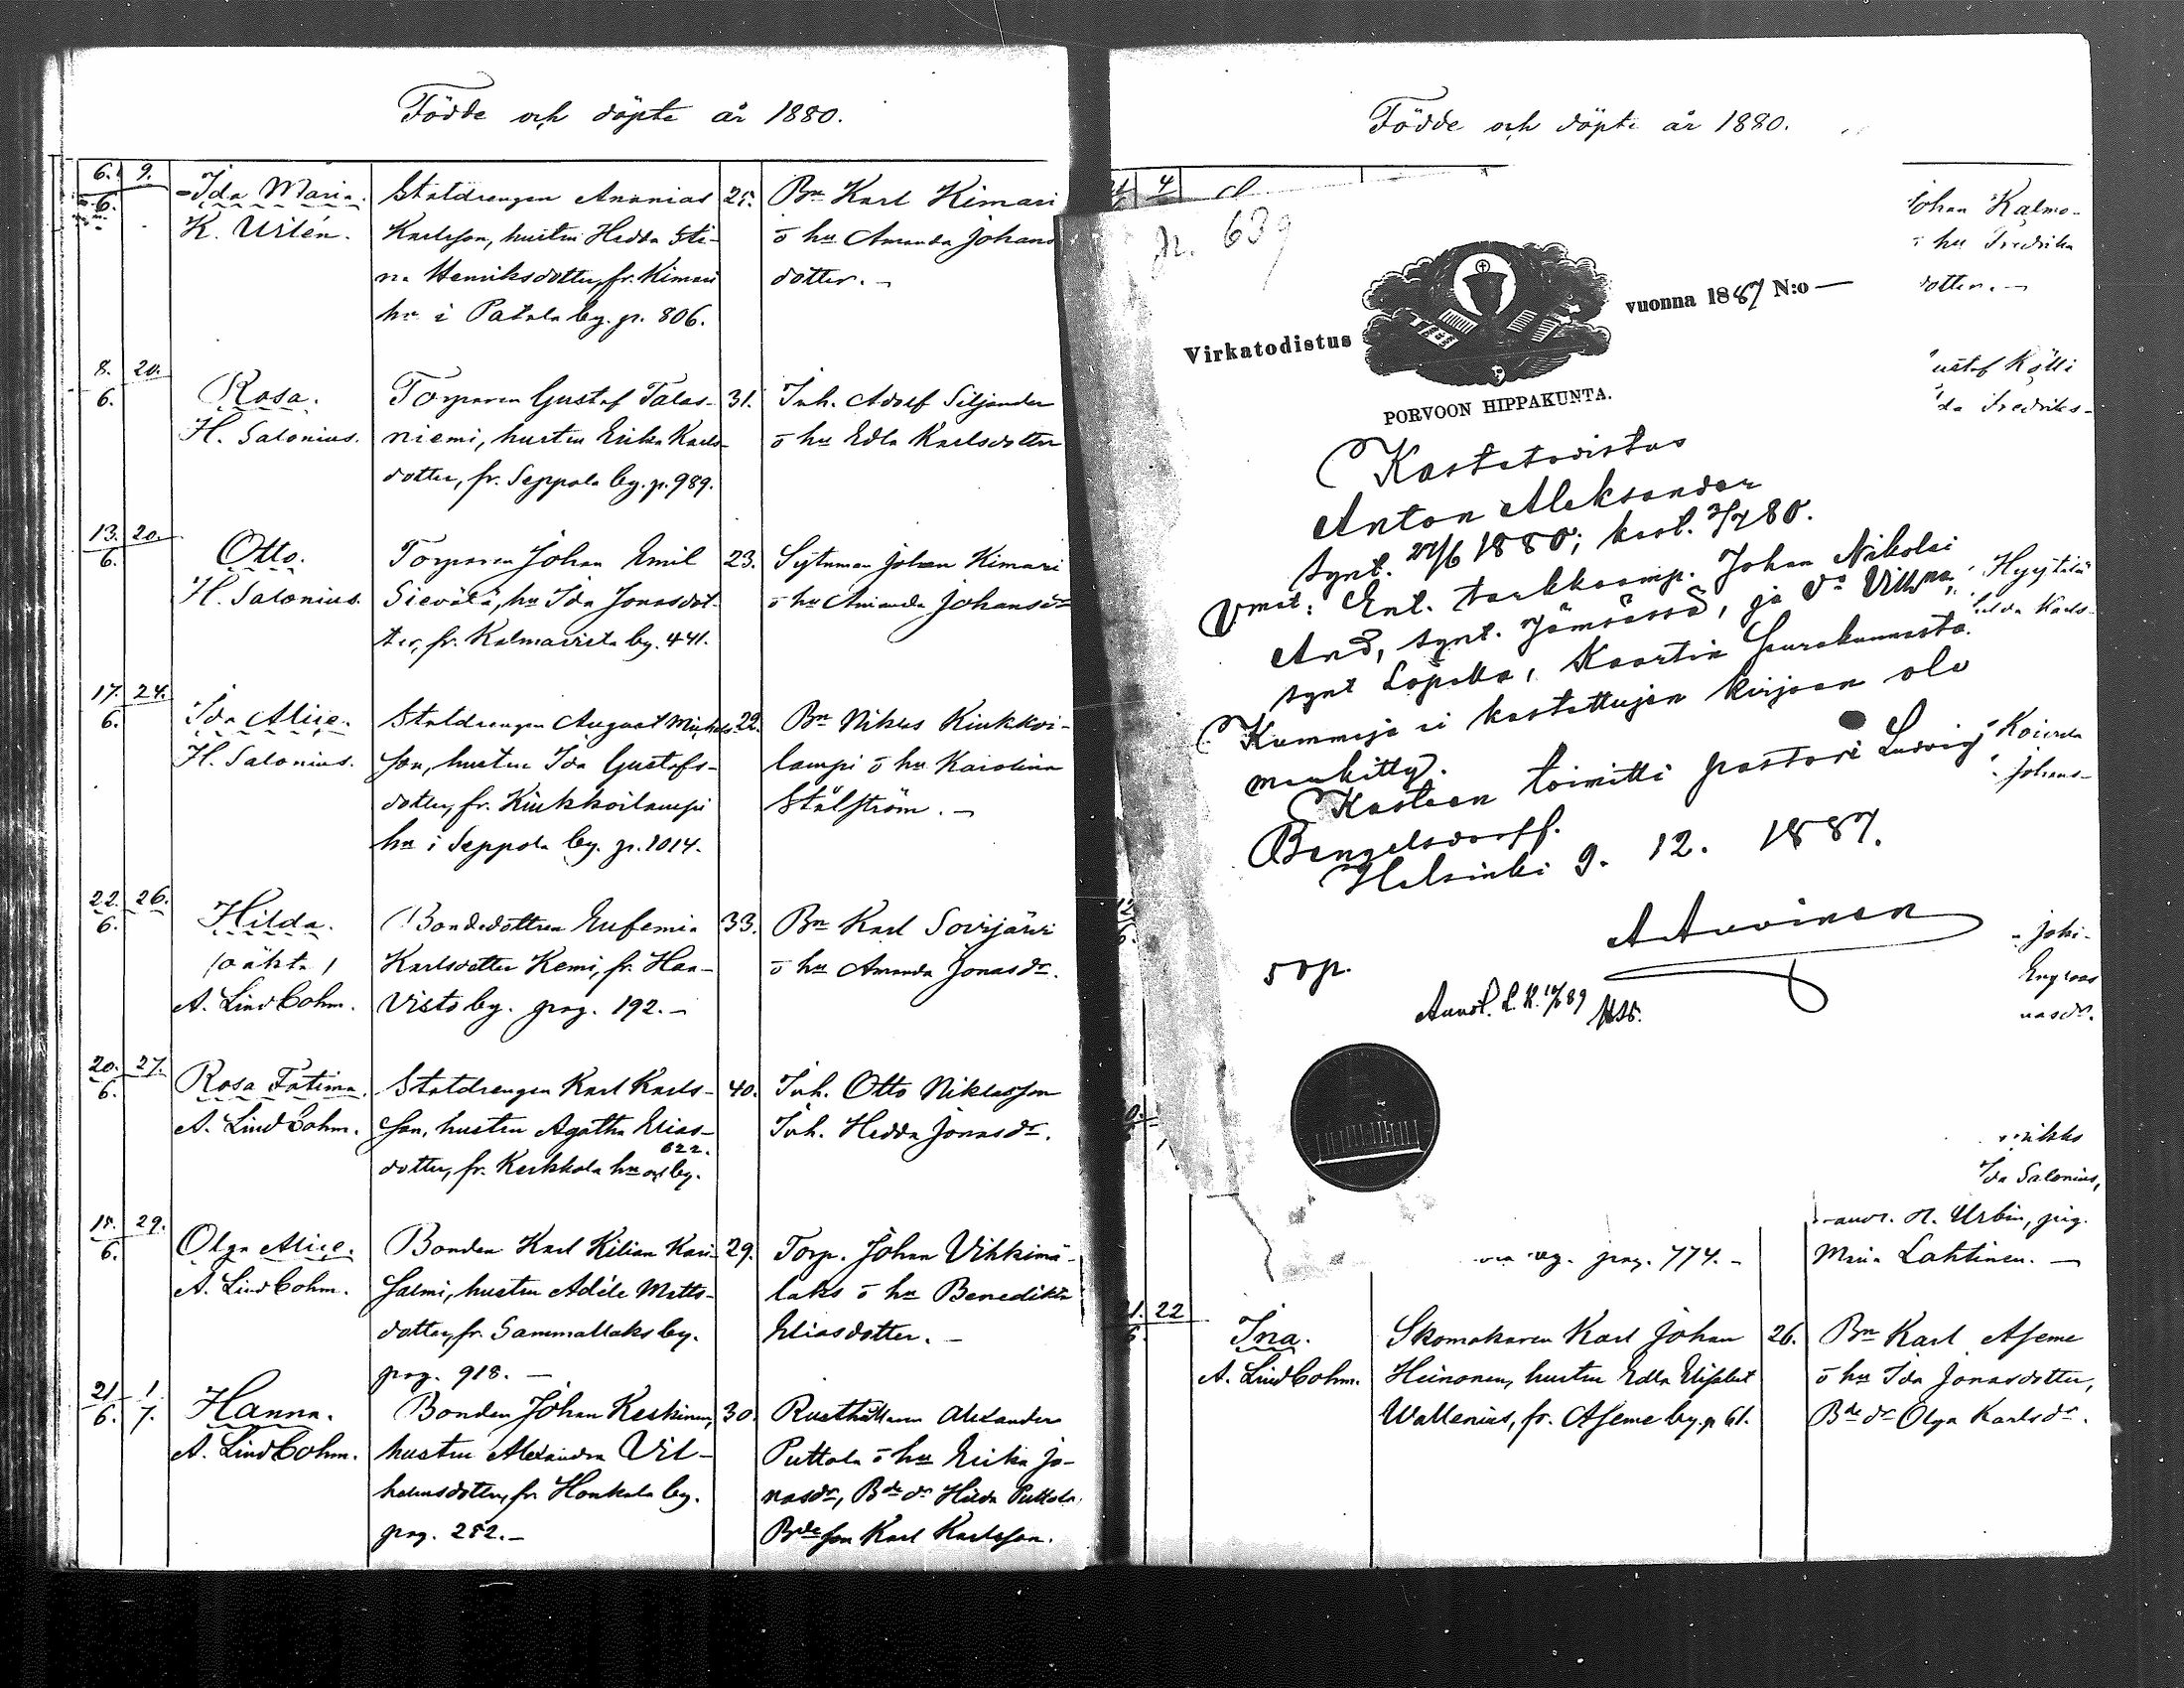 Födde och döpte år 1880.
6. 9.
6.
Ida Maria.
K. Urlén.
Statdrengen Ananias
Karlsson, hustru Hedda Sti-
na Henriksdotter, fr. Kimari
hn i Patala by. p. 806.
25.
Bn Karl Kimari
o hu Amanda Johans
dotter. –
8. 20.
6.
Rosa.
H. Salonius.
Torparen Gustaf Talas-
niemi, hustru Erika Karls-
dotter, fr. Seppola by. p. 989.
31.
Inh. Adolf Siljander
o hu Edla Karlsdotter
13. 20.
6.
Otto.
H. Salonius.
Torparen Johan Emil
Sievälä, hu Ida Jonasdot-
ter, fr. Kalmavirta by. 441.
23.
Sytnman Johan Kimari
o hu Amanda Johansdr
17. 24.
6.
Ida Alice.
H. Salonius.
Statdrengen August Michels-
son, hustru Ida Gustafs-
dotter, fr. Kiukkoilampi
hn i Seppola by. p. 1014.
22.
Bn Niklas Kiukkoi-
lampi o hu Karolina
Stålström. –
22. 26.
6.
Hilda.
(oäkta)
A. Lindbohm.
Bondedottren Eufemia
Karlsdotter Kemi, fr. Haa-
visto by. pag. 192. –
33.
Bn Karl Sovijärvi
o hu Amanda Jonasdr.
20. 27.
6.
Rosa Fatima.
A. Lindbohm.
Statdrengen Karl Karls-
son, hustru Agatha Elias-
622.
dotter, fr. Kerkkola hn o by.
40.
Inh. Otto Niklasson
Inh. Hedda Jonasdr.
18. 29.
6.
Olga Alice.
A. Lindbohm.
Bonden Karl Kilian Kari-
salmi, hustru Adéle Matts-
dotter, fr. Sammallaks by.
pag. 918. –
29.
Torp. Johan Vihkimä-
laks o hu Benedikta
Eliasdotter. –
21 1
6. 7.
Hanna.
A. Lindbohm.
Bonden Johan Keskinen,
hustru Alexandra Vil-
helmsdotter, fr. Honkola by.
pag. 252. –
30.
Rusthållaren Alexander
Puttola o hu Erika Jo-
nasdr, Bde dr Hilda Puttola,
Bde son Karl Karlsson.
Födde och döpte år 1880.
4
p. 639
Virkatodistus
vuonna 1887 N:o —
PORVOON HIPPAKUNTA.
Kastetodistus
Anton Aleksander
synt. 27/6 1880; kast. 3/7 80.
Vmat: Ent. tarkkaamp. Johan Nikolai
And, synt. Jämsässä, ja Vo Vilhma,
synt Lopella, Kaartin Seurakunnasta.
Kummeja ei kastettujen kirjaan ole
merkitty.
Kasteen toimitti pastori Ludvig
Bengelsdorff.
Helsinki 9. 12. 1887.
A Auvinen
50 p.
Johan Kalmo-
o hu Fredrika
dotter. –
ustaf Kölli
da Fredriks-
Hyytiä
Karls-
Koivula
Johans-
Joki-
Engroos
nasdr.
Ida Salonius,
H. Urbin, pig.
Maria Lahtinen. –
pag. 774. –
1. 22
6.
Ina.
A. Lindbohm.
Skomakaren Karl Johan
Heinonen, hustru Edla Elisabet
Wallenius, fr. Aseme by. p 61.
26.
Bn Karl Aseme
o hu Ida Jonasdotter,
Bde dr Olga Karlsdr.